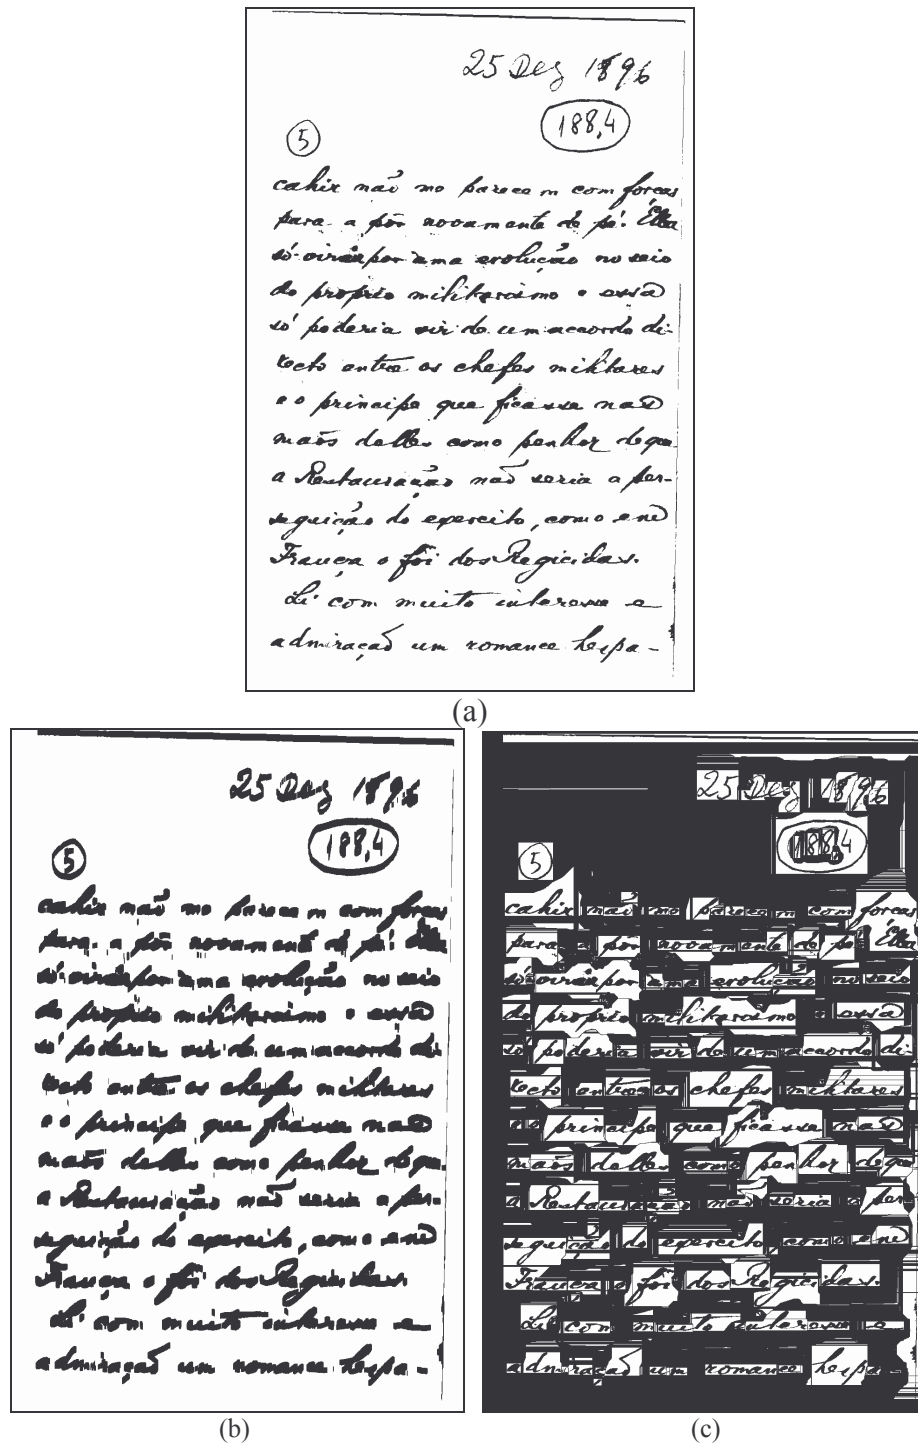 25 Dez 1896
188,4
5
cahir não me parece m com forças
para a pôr novamente de pé. Ella
só virá por uma evolução no seio
do proprio militarismo e essa
só poderia vir de um accordo di-
recto entre os chefes militares
e o principe que ficasse nas
maõs delles como penhor de que
a Restauração não seria a per-
seguição do exercito, como em
França o foi dos Regicidas.
Li com muito interesse e
admiração um romance hespa-
(a)
25 Dez 1896
188,4
5
cahir não me parece m com forças
para a pôr novamente de pé. Ella
só virá por uma evolução no seio
do proprio militarismo e essa
só poderia vir de um accordo di-
recto entre os chefes militares
e o principe que ficasse nas
maõs delles como penhor de que
a Restauração não seria a per-
seguição do exercito, como em
França o foi dos Regicidas.
Li com muito interesse e
admiração um romance hespa-
(b)
25 Dez 1896
188,4
5
cahir não me parece m com forças
para a pôr novamente de pé Ella
só virá por uma evolução no seio
do proprio militarismo e essa
só poderia vir de um accordo di-
recto entre os chefes militares
e o principe que ficasse nas
maõs delles como penhor de que
a Restauração não seria a per-
seguição do exercito, como em
França o foi dos Regicidas.
Li com muito interesse e
admiração um romance hespa-
(c)